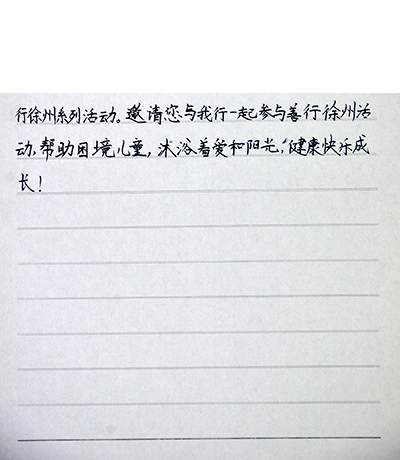 行徐州系列活动。邀请您与我行一起参与善行徐州活
动，帮助困境儿童，沐浴着爱和阳光，健康快乐成
长！